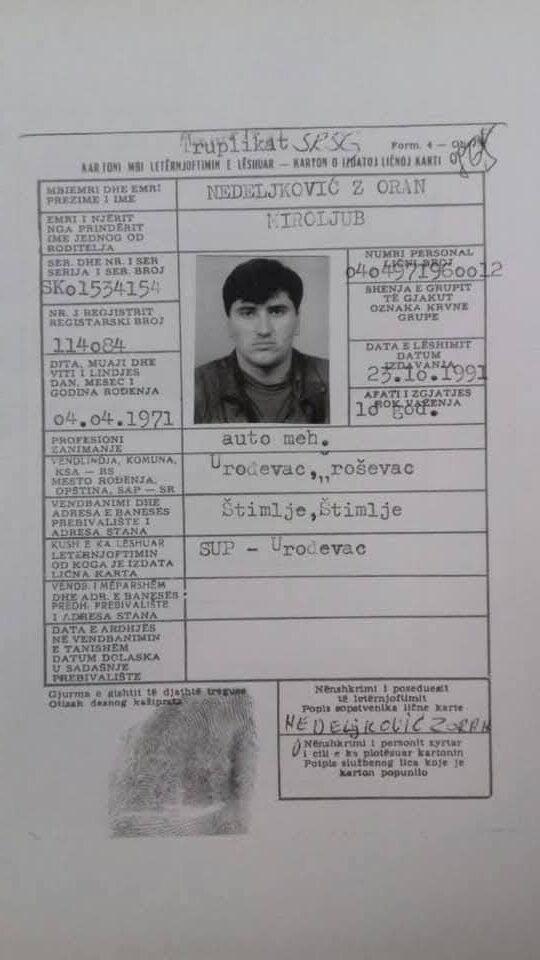 Truplikat SRSG Form. 4 —
KARTONI MBI LETËRNJOFTIMIN E LËSHUAR — KARTON O IZDATOJ LIČNOJ KARTI
MBIEMRI DHE EMRI
PREZIME I IME
NEDELJKOVIĆ Z ORAN
EMRI I NJËRIT
NGA PRINDËRIT
IME JEDNOG OD
RODITELJA
MIROLJUB
SER. DHE NR. I SER
SERIJA I SER. BROJ
SKo1534154
NR. I REGJISTRIT
REGISTARSKI BROJ
114o84
DITA, MUAJI DHE
VITI I LINDJES
DAN, MESEC I
GODINA ROĐENJA
o4.o4.1971
NUMRI PERSONAL
LIČNI BROJ
o4o4971960o12
SHENJA E GRUPIT
TË GJAKUT
OZNAKA KRVNE
GRUPE
DATA E LËSHIMIT
DATUM
IZDAVANJA
23.1o.1991
AFATI I ZGJATJES
ROK VAŽENJA
1o god.
PROFESIONI
ZANIMANJE
auto meh.
VENDLINDJA, KOMUNA,
KSA — RS
MESTO ROĐENJA,
OPŠTINA, SAP — SR
Uroševac, Uroševac
VENDBANIMI DHE
ADRESA E BANESËS
PREBIVALIŠTE I
ADRESA STANA
Štimlje,Štimlje
KUSH E KA LËSHUAR
LETËRNJOFTIMIN
OD KOGA JE IZDATA
LIČNA KARTA
SUP - Uroševac
VENDB. I MËPARSHËM
DHE ADR. E BANESËS
PREDH. PREBIVALIŠTE
I ADRESA STANA
DATA E ARDHJËS
NË VENDBANIMIN
E TANISHËM
DATUM DOLASKA
U SADAŠNJE
PREBIVALIŠTE
Gjurma e gishtit të djathtë tregues
Otisak desnog kažiprsta
Nënshkrimi i poseduesit
të letërnjoftimit
Popis sopstvenika lične karte
NEDELJKOVIĆ ZORAN
Nënshkrimi i personit zyrtar
i cili e ka plotësuar kartonin
Potpis službenog lica koje je
karton popunilo